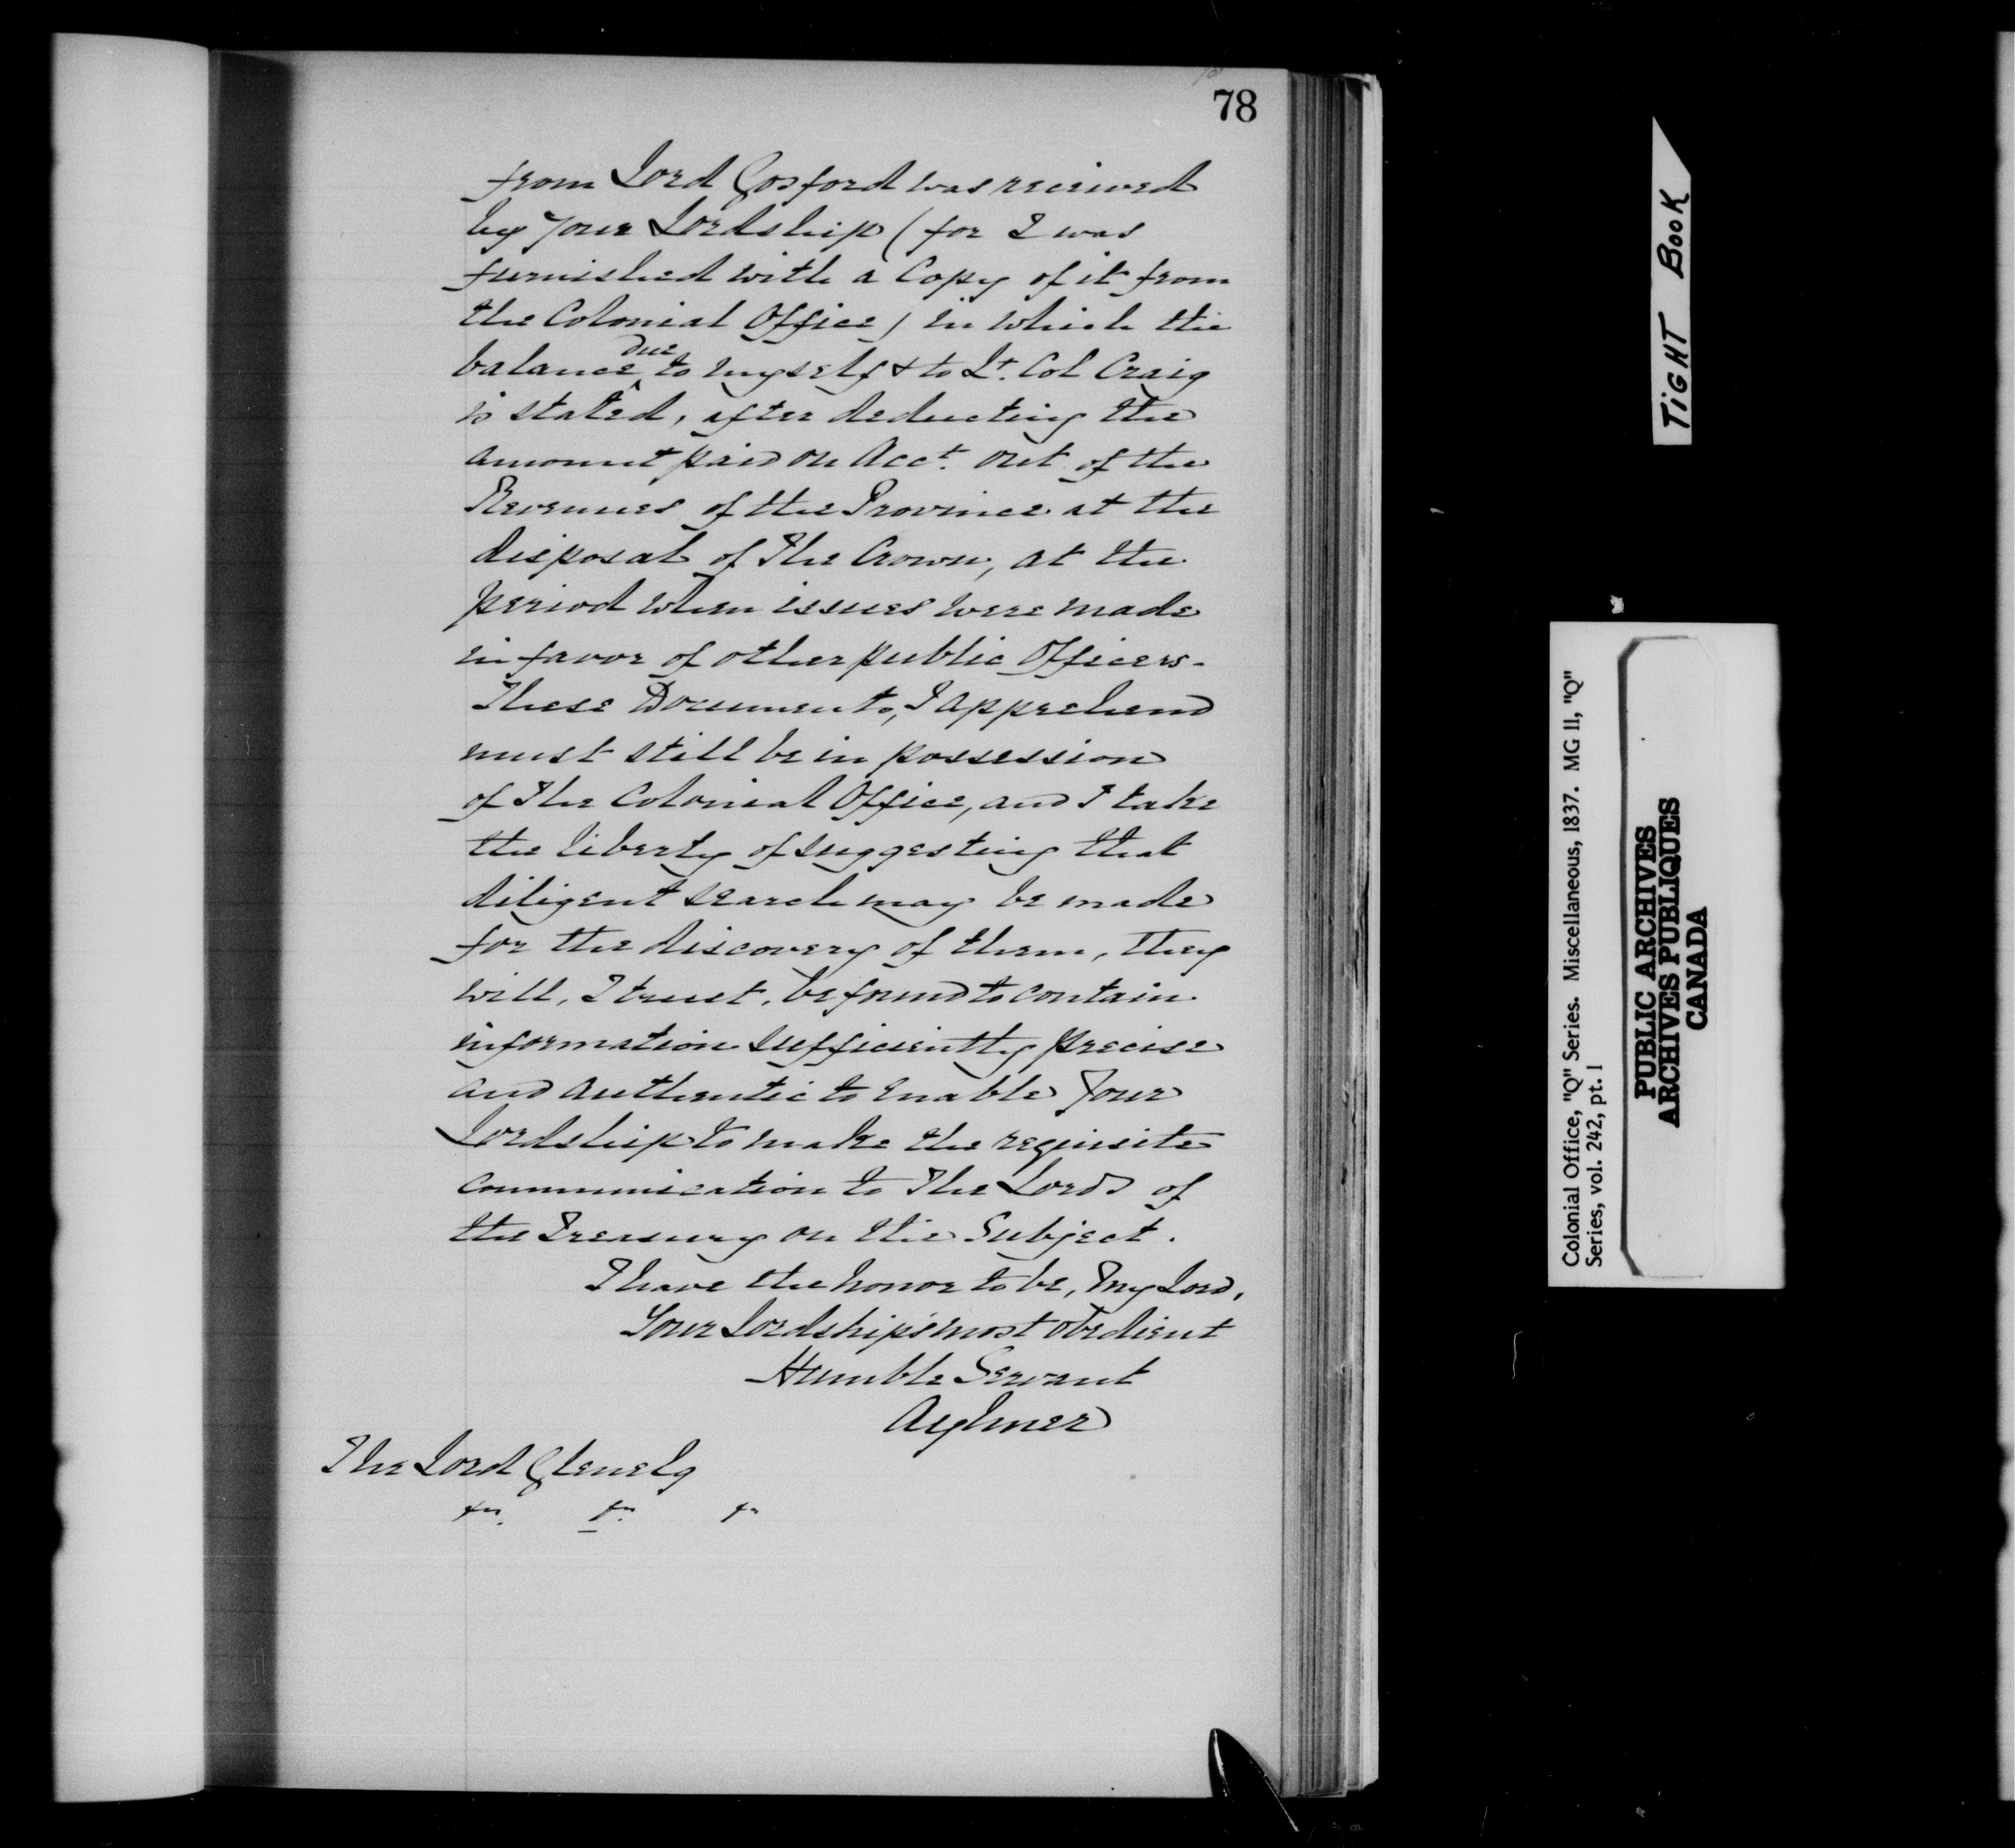 78
from Lord Gosford was received
by your Lordship (for I was
furnished with a Copy of it from
the Colonial Office) in which the
balance due to myself & to Lt. Col Craig
is stated, after deducting the
amount paid on Acct. out of the
Revenues of the Province at the
disposal of The Crown, at the
period when issues were made
in favor of other public Officers.
These Documents, I apprehend
must still be in possession
of The Colonial Office, and I take
the liberty of suggesting that
diligent search may be made
for the discovery of them, they
will, I trust, be found to contain
information sufficiently precise
and authentic to enable Your
Lordship to make the requisite
communication to The Lords of
the Treasury on the Subject.
I have the honor to be, My Lord,
Your Lordship's most obedient
Humble Servant
Aylmer
The Lord Glenelg
TIGHT BOOK
Colonial Office, "Q" Series. Miscellaneous, 1837. MG 11, "Q"
Series, vol. 242, pt. 1
PUBLIC ARCHIVES
ARCHIVES PUBLIQUES
CANADA